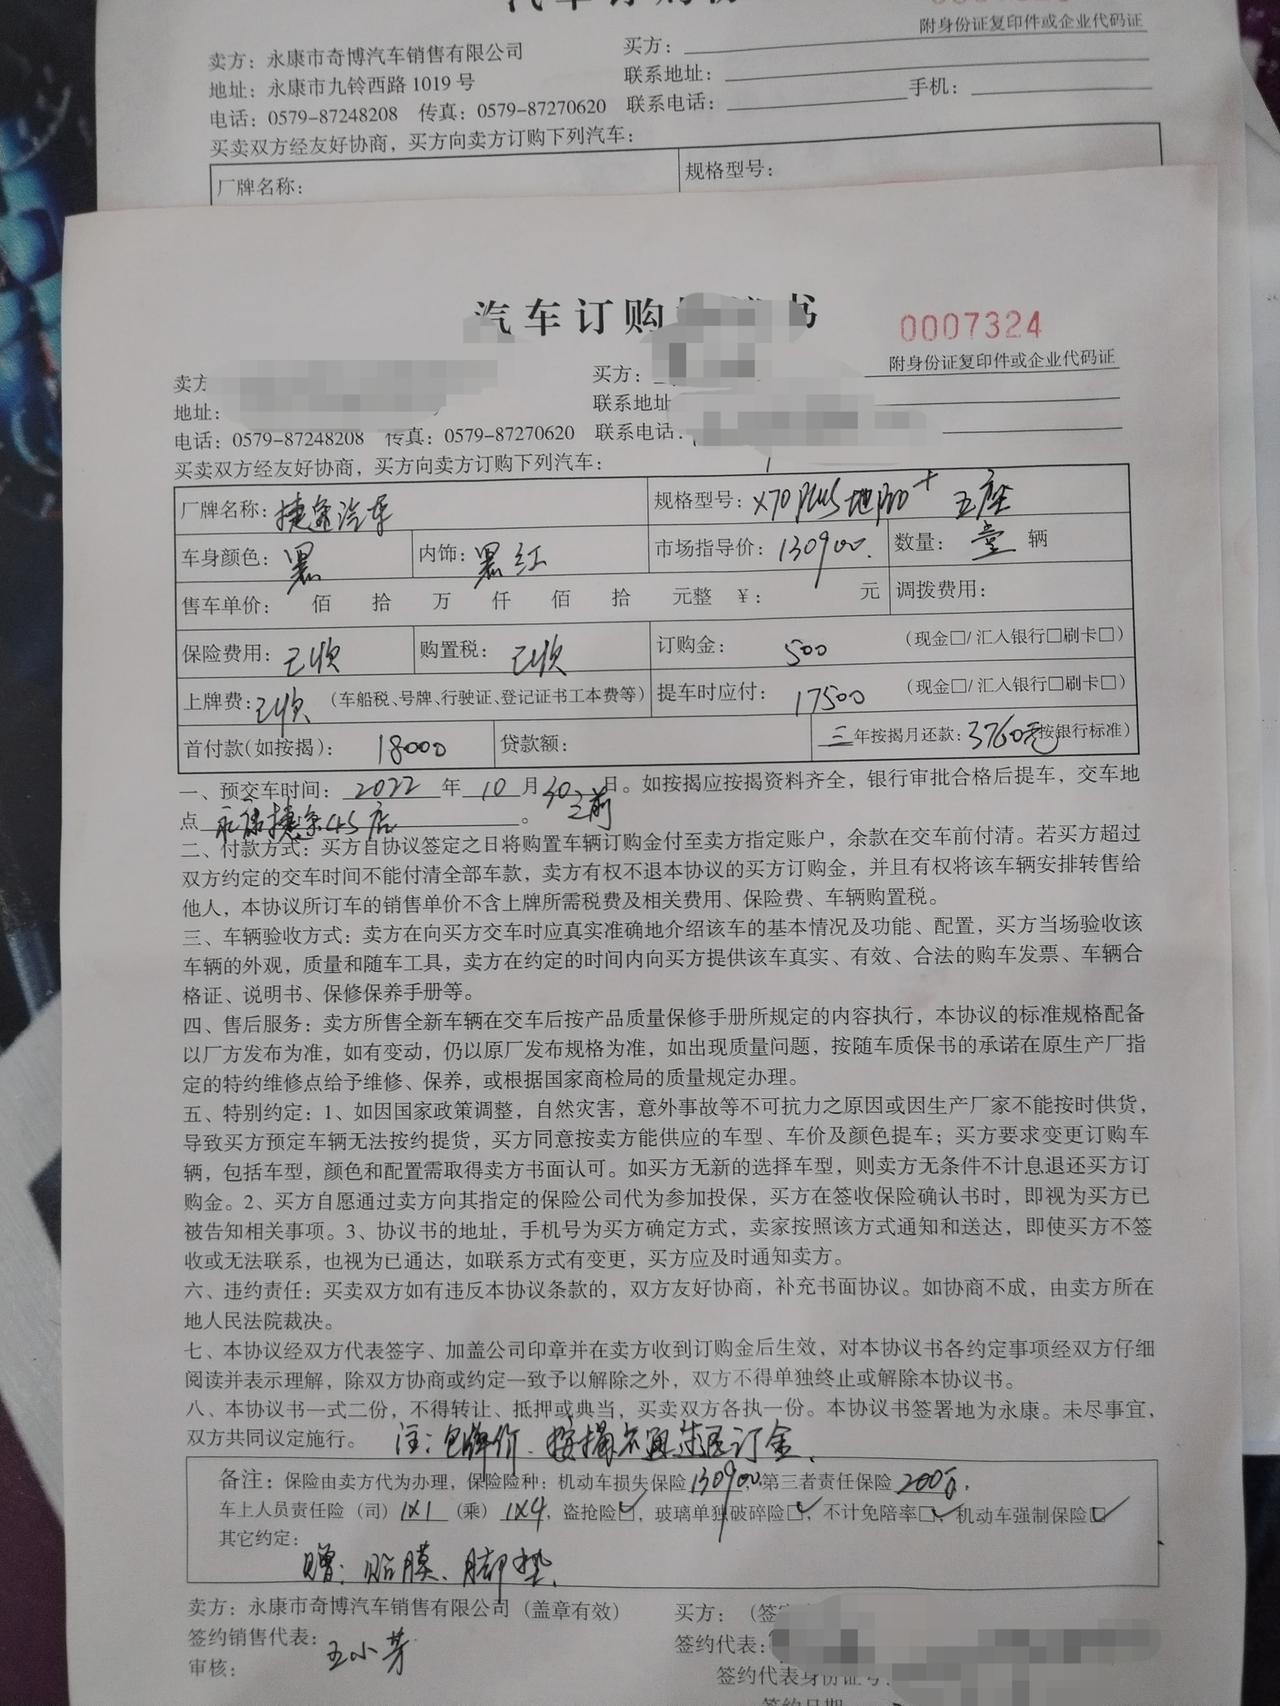 汽车订购
附身份证复印件或企业代码证
卖方：永康市奇博汽车销售有限公司 买方：
地址：永康市九铃西路 1019 号 联系地址：
电话：0579-87248208 传真：0579-87270620 联系电话： 手机：
买卖双方经友好协商，买方向卖方订购下列汽车：
厂牌名称： 规格型号：
汽车订购 书
0007324
附身份证复印件或企业代码证
卖方 买方：
地址： 联系地址
电话：0579-87248208 传真：0579-87270620 联系电话：
买卖双方经友好协商，买方向卖方订购下列汽车：
厂牌名称：捷途汽车 规格型号：X70 PLUS 五座
车身颜色：黑 内饰：黑红 市场指导价：130900. 数量：壹 辆
售车单价： 佰 拾 万 仟 佰 拾 元整 ¥： 元 调拨费用：
保险费用：已收 购置税：已收 订购金：500 （现金□/汇入银行□刷卡□）
上牌费：已收 （车船税、号牌、行驶证、登记证书工本费等） 提车时应付：17500 （现金□/汇入银行□刷卡□）
首付款(如按揭)：18000 贷款额： 三年按揭月还款：3760元(按银行标准)
一、预交车时间：2022年10月30日之前。如按揭应按揭资料齐全，银行审批合格后提车，交车地
点 永康捷途4S店 。
二、付款方式：买方自协议签定之日将购置车辆订购金付至卖方指定账户，余款在交车前付清。若买方超过
双方约定的交车时间不能付清全部车款，卖方有权不退本协议的买方订购金，并且有权将该车辆安排转售给
他人，本协议所订车的销售单价不含上牌所需税费及相关费用、保险费、车辆购置税。
三、车辆验收方式：卖方在向买方交车时应真实准确地介绍该车的基本情况及功能、配置，买方当场验收该
车辆的外观，质量和随车工具，卖方在约定的时间内向买方提供该车真实、有效、合法的购车发票、车辆合
格证、说明书、保修保养手册等。
四、售后服务：卖方所售全新车辆在交车后按产品质量保修手册所规定的内容执行，本协议的标准规格配备
以厂方发布为准，如有变动，仍以原厂发布规格为准，如出现质量问题，按随车质保书的承诺在原生产厂指
定的特约维修点给予维修、保养，或根据国家商检局的质量规定办理。
五、特别约定：1、如因国家政策调整，自然灾害，意外事故等不可抗力之原因或因生产厂家不能按时供货，
导致买方预定车辆无法按约提货，买方同意按卖方能供应的车型、车价及颜色提车；买方要求变更订购车
辆，包括车型，颜色和配置需取得卖方书面认可。如买方无新的选择车型，则卖方无条件不计息退还买方订
购金。2、买方自愿通过卖方向其指定的保险公司代为参加投保，买方在签收保险确认书时，即视为买方已
被告知相关事项。3、协议书的地址，手机号为买方确定方式，卖家按照该方式通知和送达，即使买方不签
收或无法联系，也视为已通达，如联系方式有变更，买方应及时通知卖方。
六、违约责任：买卖双方如有违反本协议条款的，双方友好协商，补充书面协议。如协商不成，由卖方所在
地人民法院裁决。
七、本协议经双方代表签字、加盖公司印章并在卖方收到订购金后生效，对本协议书各约定事项经双方仔细
阅读并表示理解，除双方协商或约定一致予以解除之外，双方不得单独终止或解除本协议书。
八、本协议书一式二份，不得转让、抵押或典当，买卖双方各执一份。本协议书签署地为永康。未尽事宜，
双方共同议定施行。 注：包牌价、按揭不通过退订金、
备注：保险由卖方代为办理，保险险种：机动车损失保险130900.第三者责任保险200万.
车上人员责任险（司）1X1（乘）1X4，盗抢险☑，玻璃单独破碎险☑，不计免赔率☑，机动车强制保险☑
其它约定：
赠：贴膜、脚垫、
卖方：永康市奇博汽车销售有限公司（盖章有效） 买方：（签
签约销售代表：王小芳 签约代表：
审核： 签约代表身份证号：
签约日期